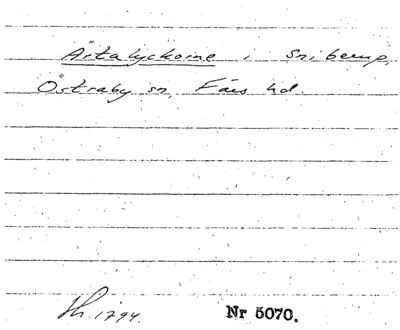 Ärtalyckorne i Sniberup,
Östraby sn, Färs hd.
Sk. 1794.
Nr 5070.